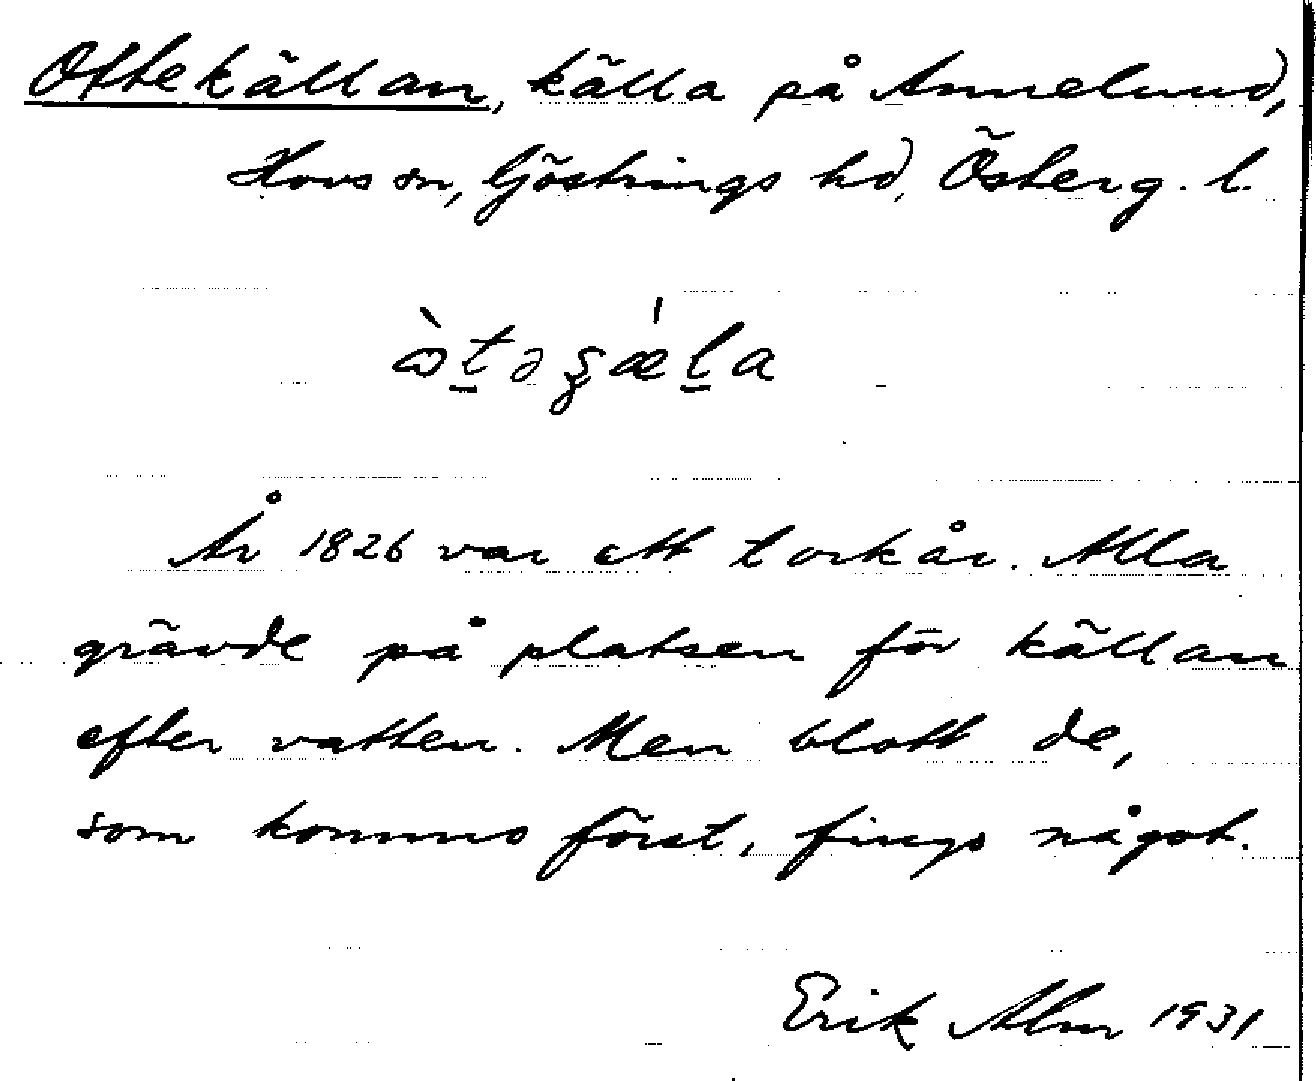 Ottekällan, källa på Annelund,
Hovs sn, Göstrings hd, Österg. l.
År 1826 var ett torkår. Alla
grävde på platsen för källan
efter vatten. Men blott de,
som kommo först, fingo något.
Erik Alm 1931